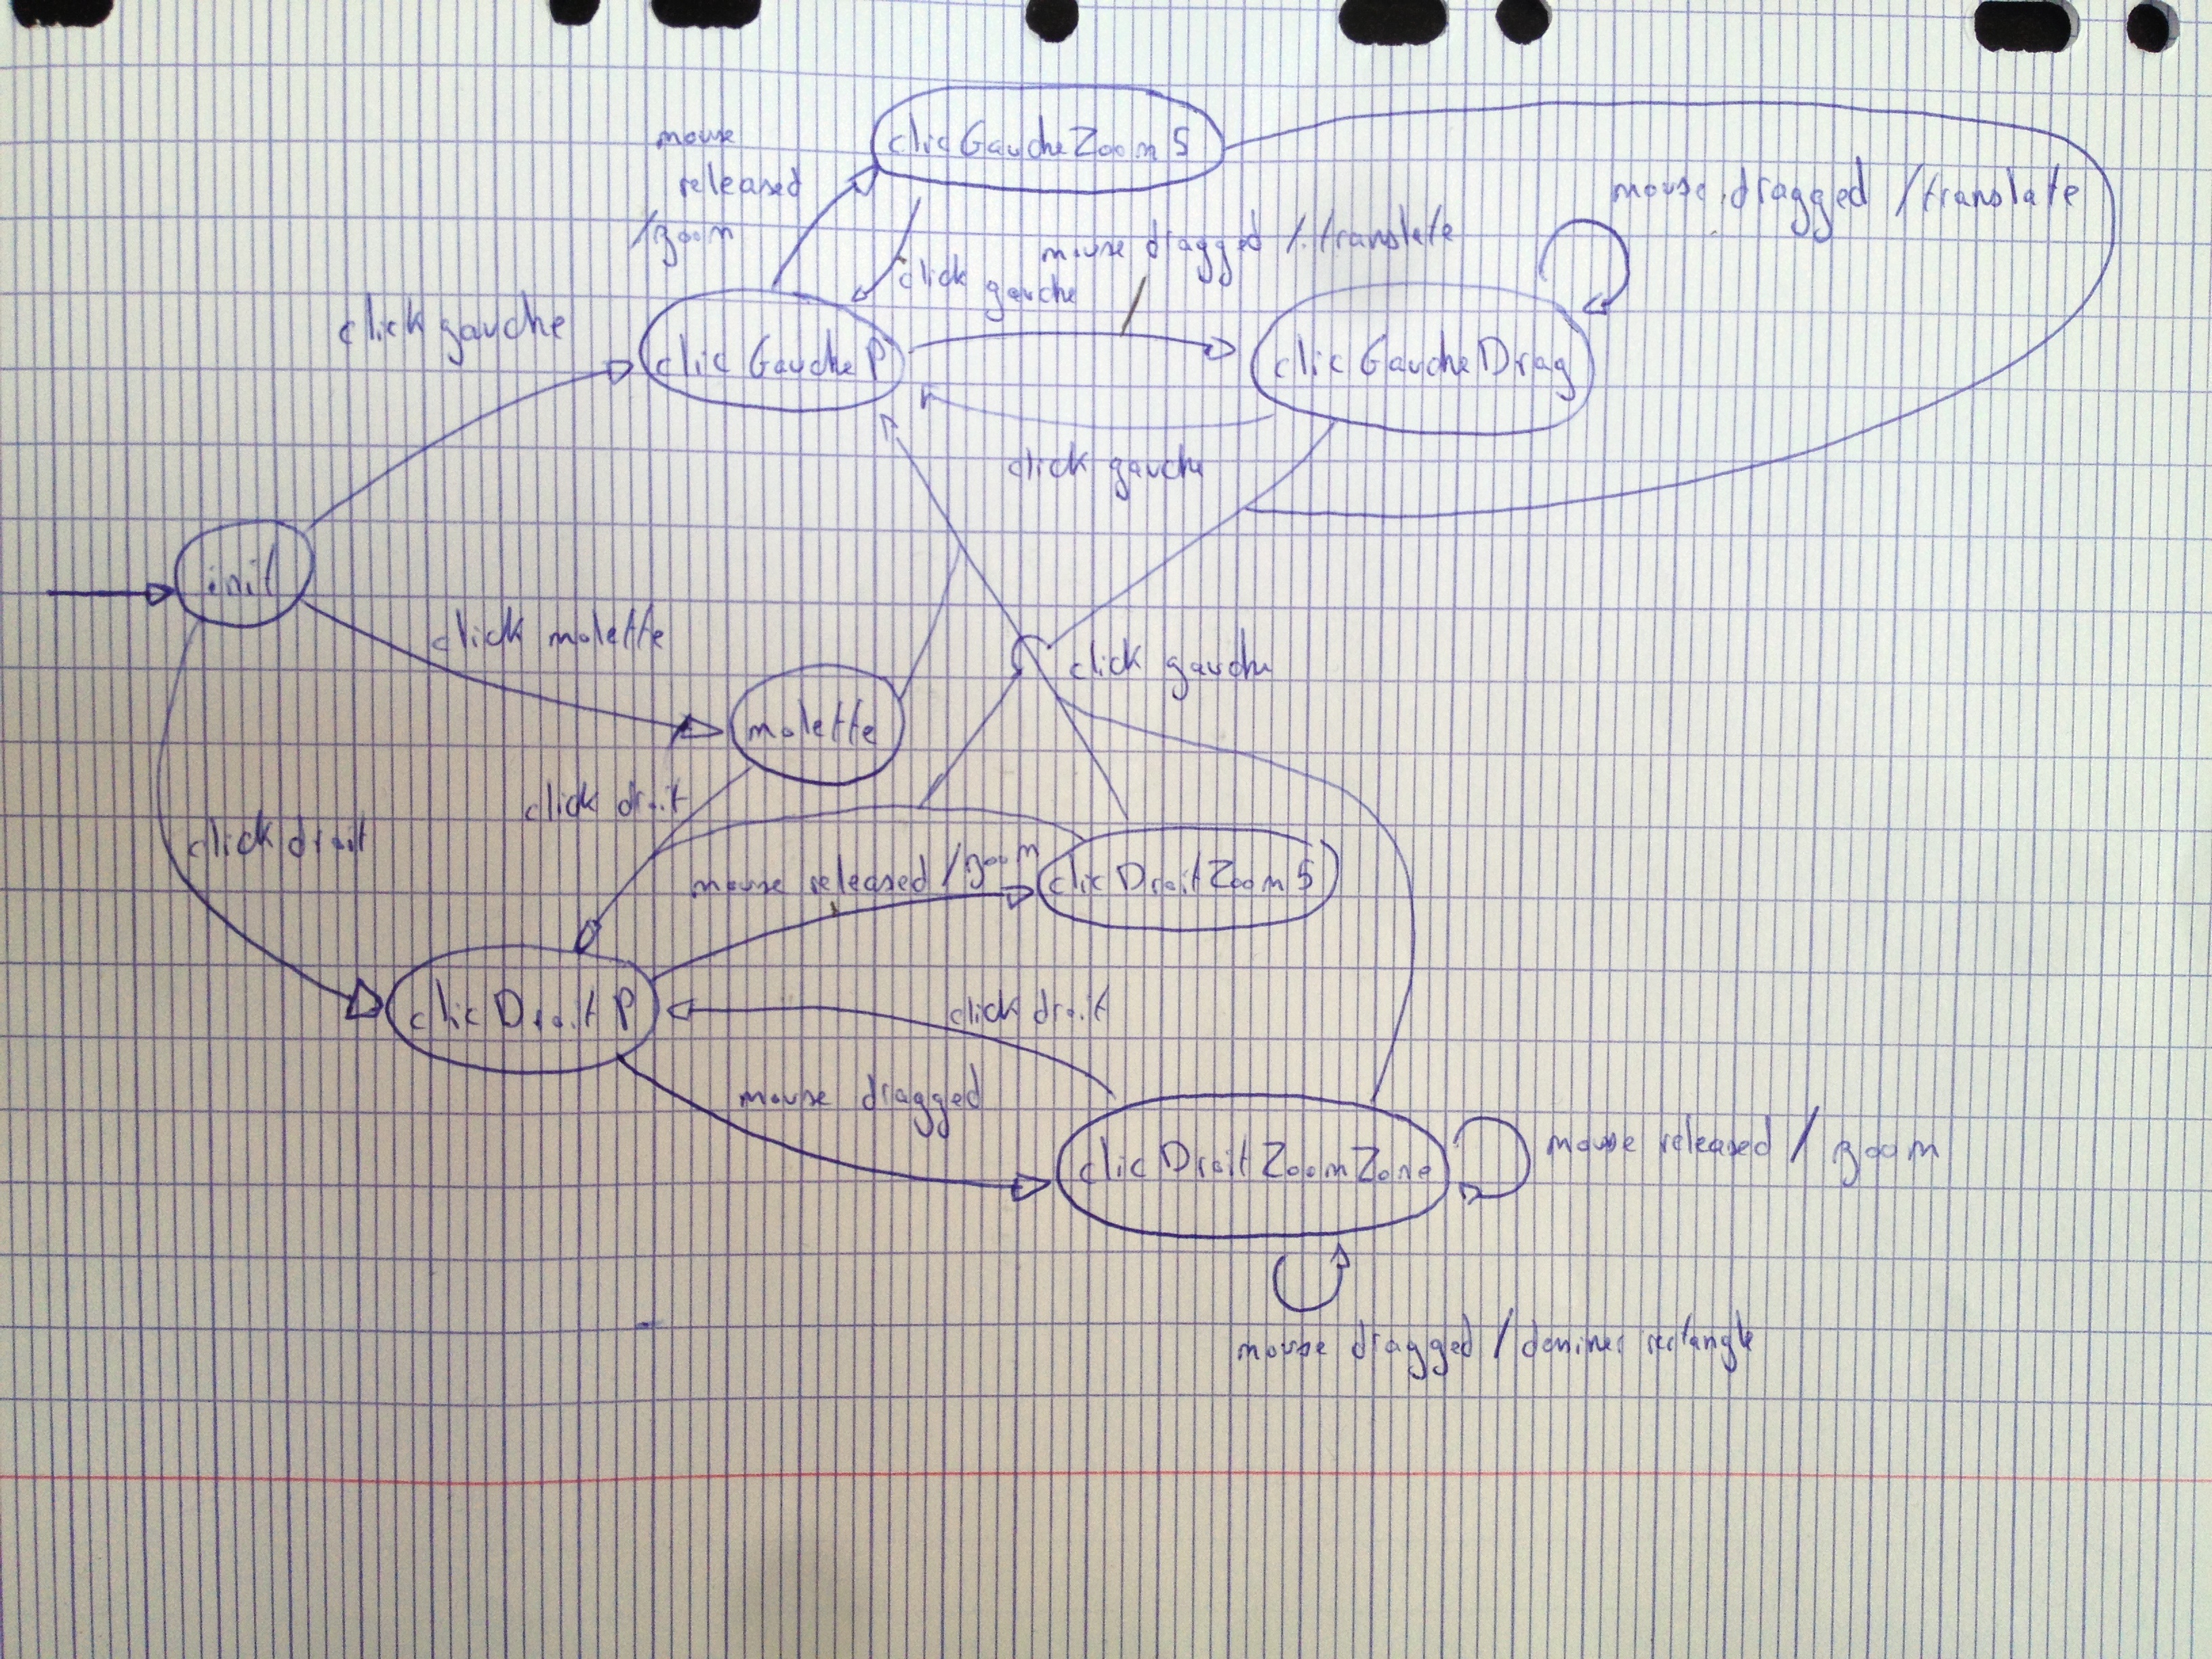 clicGaucheZoomS
mouse
released
/zoom
mouse dragged /translate
mouse dragged /translate
click
gauche
click gauche
clicGaucheP
clicGaucheDrag
click gauche
init
click molette
click gauche
molette
click droit
click droit
mouse released /zoom
clicDroitZoomS
clicDroitP
click droit
mouse dragged
clicDroitZoomZone
mouse released / zoom
mouse dragged / rectangle